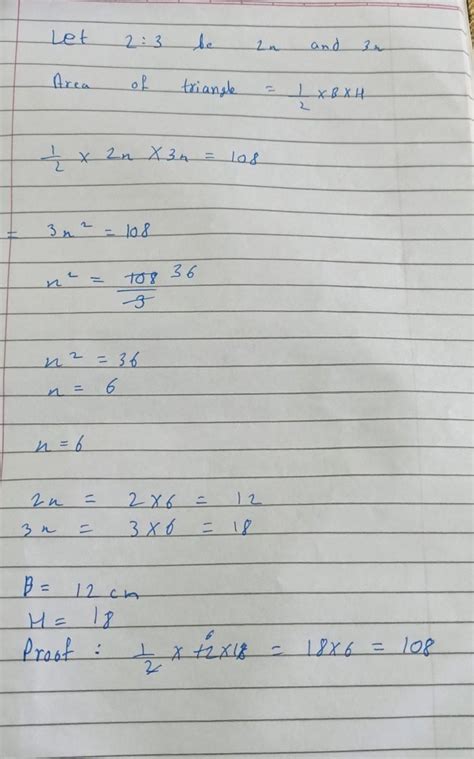 Let 2:3 be 2n and 3n
Area of triangle = 1/2 × B × H
1/2 × 2n × 3n = 108
= 3n² = 108
n² = 108/3 36
n² = 36
n = 6
n = 6
2n = 2×6 = 12
3n = 3×6 = 18
B = 12 cm
H = 18
Proof : 1/2 × 12 6 × 18 = 18×6 = 108